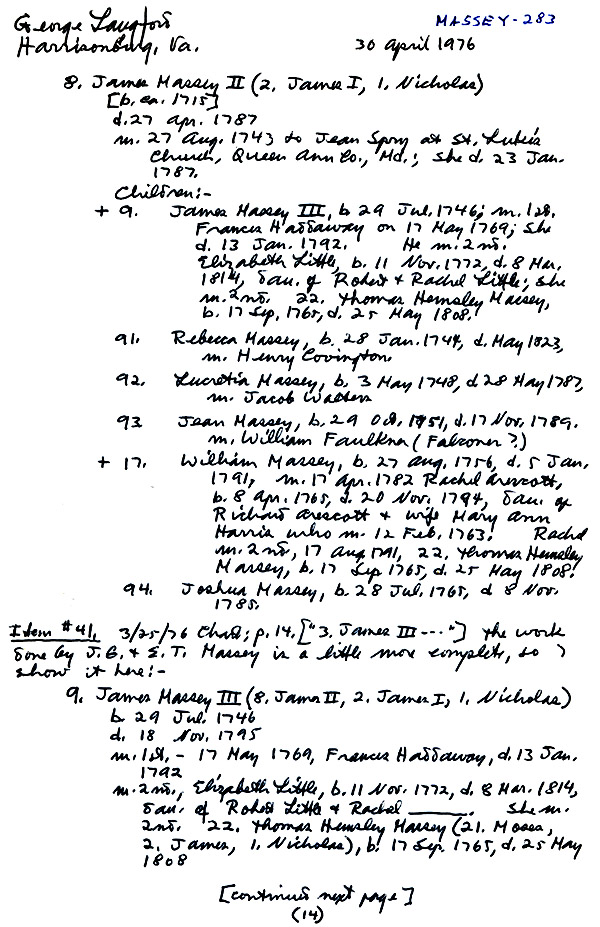 George Langford
MASSEY-283
Harrisonburg, Va.
30 April 1976
8. James Massey II (2. James I, 1. Nicholas)
[b. ca. 1715]
d. 27 Apr. 1787
m. 27 Aug. 1743 to Jean Spry at St. Luke's
Church, Queen Ann Co., Md.; she d. 23 Jan.
1787.
Children:-
+ 9. James Massey III, b. 29 Jul. 1746; m. 1st.
Frances Haddaway on 17 May 1769; she
d. 13 Jan. 1792. He m. 2nd.
Elizabeth Little, b. 11 Nov. 1772, d. 8 Mar.
1814, dau. of Robert & Rachel Little; she
m. 2nd. 22. Thomas Hemsley Massey,
b. 17 Sep. 1765, d. 25 May 1808.
91. Rebecca Massey, b. 28 Jan. 1744, d. May 1823,
m. Henry Covington
92. Lucretia Massey, b. 3 May 1748, d 28 May 1787,
m. Jacob Walters
93 Jean Massey, b. 29 Oct. 1751, d. 17 Nov. 1789.
m. William Faulkner (Falconer?)
+ 17. William Massey, b. 27 Aug. 1756, d. 5 Jan.
1791, m. 17 Apr. 1782 Rachel Arescott,
b. 8 Apr. 1765, d. 20 Nov. 1794, dau. of
Richard Arescott & wife Mary Ann
Harris who m. 12 Feb. 1763. Rachel
m. 2nd, 17 Aug 1791, 22. Thomas Hemsley
Massey, b. 17 Sep 1765, d. 25 May 1808.
94. Joshua Massey, b. 28 Jul. 1765, d 8 Nov.
1785.
Item #41. 3/25/76 Chas; p. 14. ["3. James III ---"] The work
done by J. G. & E. T. Massey is a little more complete, so I
show it here:-
9. James Massey III (8. James II, 2. James I, 1. Nicholas)
b. 29 Jul. 1746
d. 18 Nov. 1795
m. 1st, - 17 May 1769, Frances Haddaway, d. 13 Jan.
1792
m. 2nd., Elizabeth Little, b. 11 Nov. 1772, d. 8 Mar. 1814,
dau. of Robert Little & Rachel ______. She m.
2nd. 22. Thomas Hemsley Massey (21. Moses,
2. James, 1. Nicholas), b. 17 Sep. 1765, d. 25 May
1808
[continued next page]
(14)